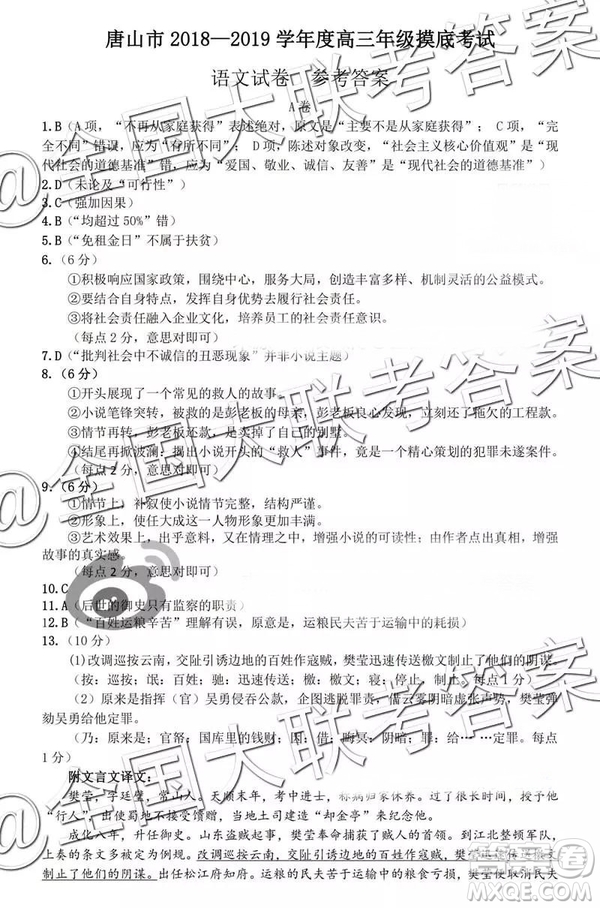 唐山市 2018—2019 学年度高三年级摸底考试
语文试卷 参考答案
A 卷
1.B（A 项，“不再从家庭获得”表述绝对，原文是“主要不是从家庭获得”；C 项，“完
全不同”错误，应为“有所不同”；D 项，陈述对象改变，“社会主义核心价值观”是“现
代社会的道德基准”错，应为“爱国、敬业、诚信、友善”是“现代社会的道德基准”）
2.D（未论及“可行性”）
3.C（强加因果）
4.B（“均超过 50%”错）
5.B（“免租金日”不属于扶贫）
6.（6 分）
①积极响应国家政策，围绕中心，服务大局，创造丰富多样、机制灵活的公益模式。
②要发挥自身优势去履行社会责任。
③将公益事业融入企业文化，培养员工的社会责任意识。
（每点 2 分，意思对即可）
7.D（“批判社会中不诚信的丑恶现象”并非小说主题）
8.（6 分）
①开头展现了一个常见的救人的故事。
②小说笔锋突转，被救的是彭老板的母亲，彭老板良心发现，支付了拖欠的工程款。
③情节再转，彭老板还款，是卖掉了自己的别墅。
④结尾再掀波澜：揭出小说开头的“救人”事件，竟是一个精心策划的犯罪未遂案件。
（每点 2 分，意思对即可）
9.（6 分）
①情节上，补叙使小说情节完整，结构严谨。
②形象上，使任大成这一人物形象更加丰满。
③艺术效果上，出乎意料，又在情理之中，增强小说的可读性；由作者点出真相，增强
故事的真实感。
（每点 2 分，意思对即可）
10.C
11.A（后世的御史只有监察的职责）
12.B（“百姓运粮辛苦”理解有误，原意是，运粮民夫苦于运输中的耗损）
13.（10 分）
(1)改调巡按云南，交趾引诱边地的百姓作寇贼，樊莹迅速传送檄文制止了他们的阴谋。
（按：巡按；氓：百姓；驰：迅速传送；戢：制止。每点 1 分）
（2）原来是指挥（官）吴勇侵吞公款，企图逃脱罪责，借云雾阴暗虚张声势，樊莹弹
劾吴勇给他定罪。
（乃：原来是；官帑：国库里的钱财；图：企图；晦冥：阴暗；罪……：给……定罪。每点
1 分）
附文言文译文：
樊莹，字廷璧，常山人。天顺末年，考中进士，称病归家休养。过了很长时间，授予他
“行人”，出使蜀地不接受馈赠，当地土司建造“却金亭”来记载这件事。
成化八年，升任御史。山东盗贼兴起，奉命樊莹前去捕获了贼人的首领。到江北整顿军队，
上奏的条文多被定为例规。改调巡按云南，交趾引诱边地的百姓作寇贼，樊莹迅速传送檄文
制止了他们的阴谋。出任松江府知府。运粮的民夫苦于运输的损耗，樊莹使取消民夫
@全国大联考答案
答案圈
MXQE.COM